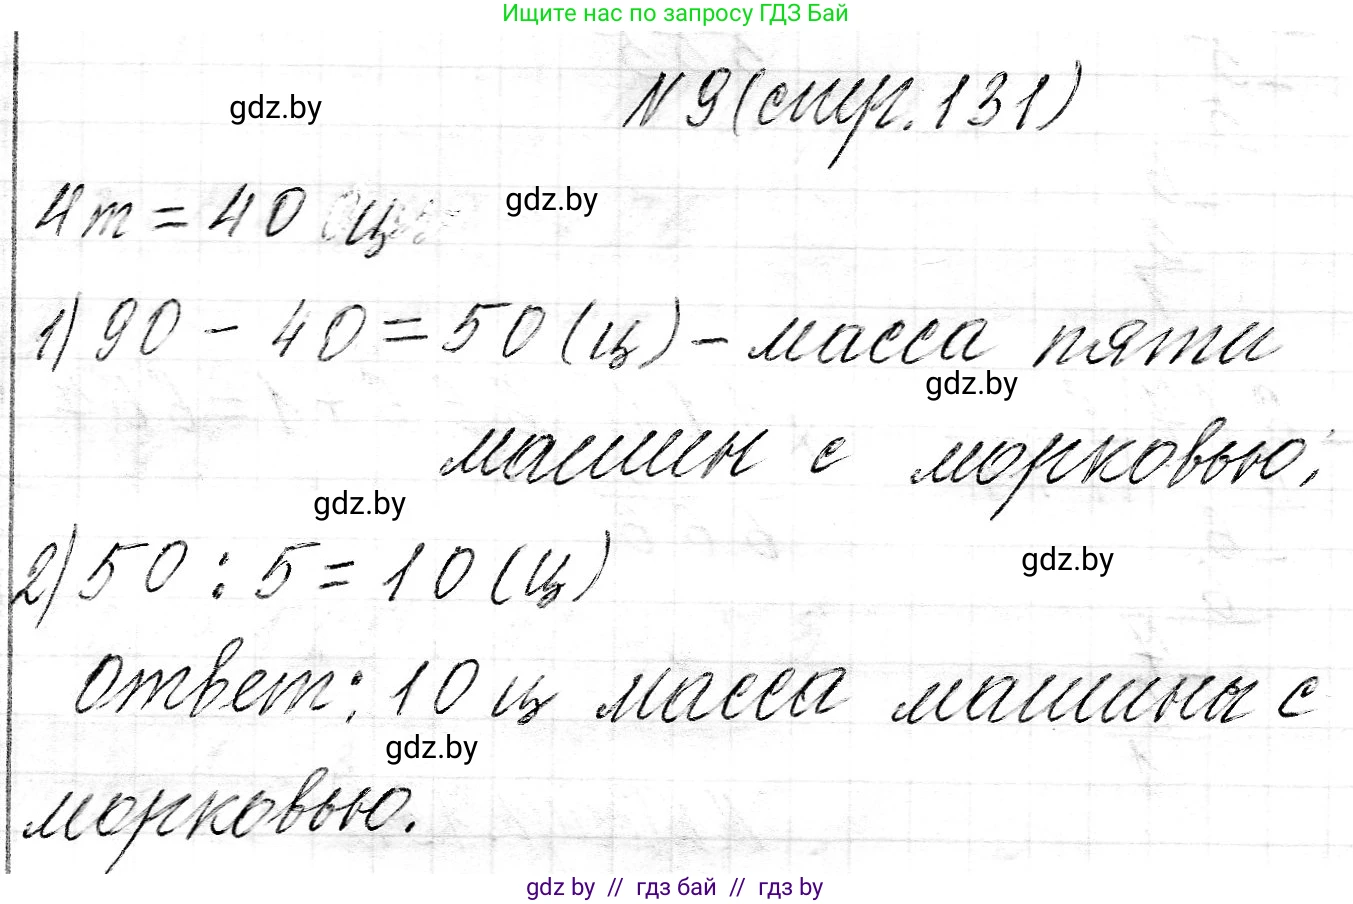 Ищите нас по запросу ГДЗ Бай
№ 9 (стр. 131)
gdz.by
4 т = 40 ц.
gdz.by
1) 90 - 40 = 50 (ц) - масса пяти
gdz.by
машин с морковью;
gdz.by
2) 50 : 5 = 10 (ц)
gdz.by
Ответ: 10 ц масса машины с
gdz.by
морковью.
gdz by // гдз бай // гдз by